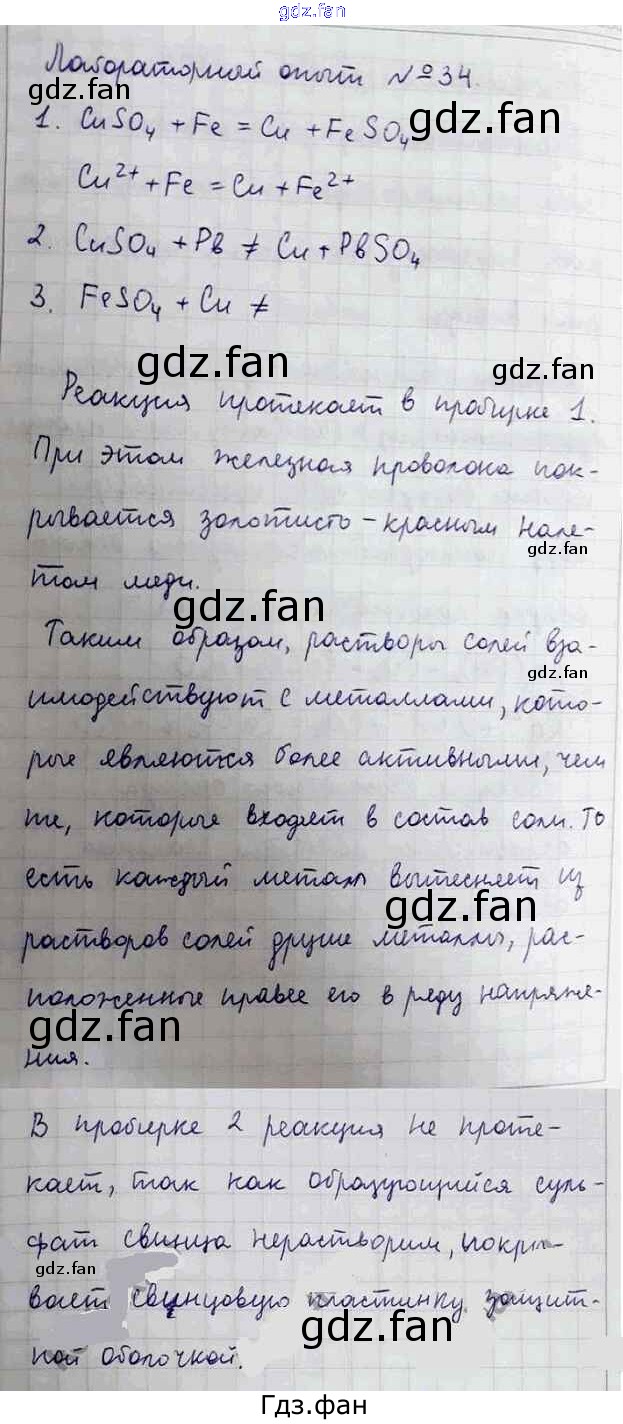 gdz.fan
Лабораторный опыт №34.
gdz.fan
1. CuSO₄ + Fe = Cu + FeSO₄
Cu²⁺ + Fe = Cu + Fe²⁺
2. CuSO₄ + Pb ≠ Cu + PbSO₄
3. FeSO₄ + Cu ≠
gdz.fan
gdz.fan
Реакция протекает в пробирке 1.
При этом железная проволока пок-
рывается золотисто-красным нале-
gdz.fan
том меди.
gdz.fan
Таким образом, растворы солей вза-
gdz.fan
имодействуют с металлами, кото-
рые являются более активными, чем
те, которые входят в состав соли. То
есть каждый металл вытесняет из
gdz.fan
растворов солей другие металлы, рас-
положенные правее его в ряду напряже-
gdz.fan
ния.
В пробирке 2 реакция не проте-
кает, так как образующийся суль-
фат свинца нерастворим, покры-
gdz.fan
вает свинцовую пластинку защит-
gdz.fan
ной оболочкой.
Гдз.фан